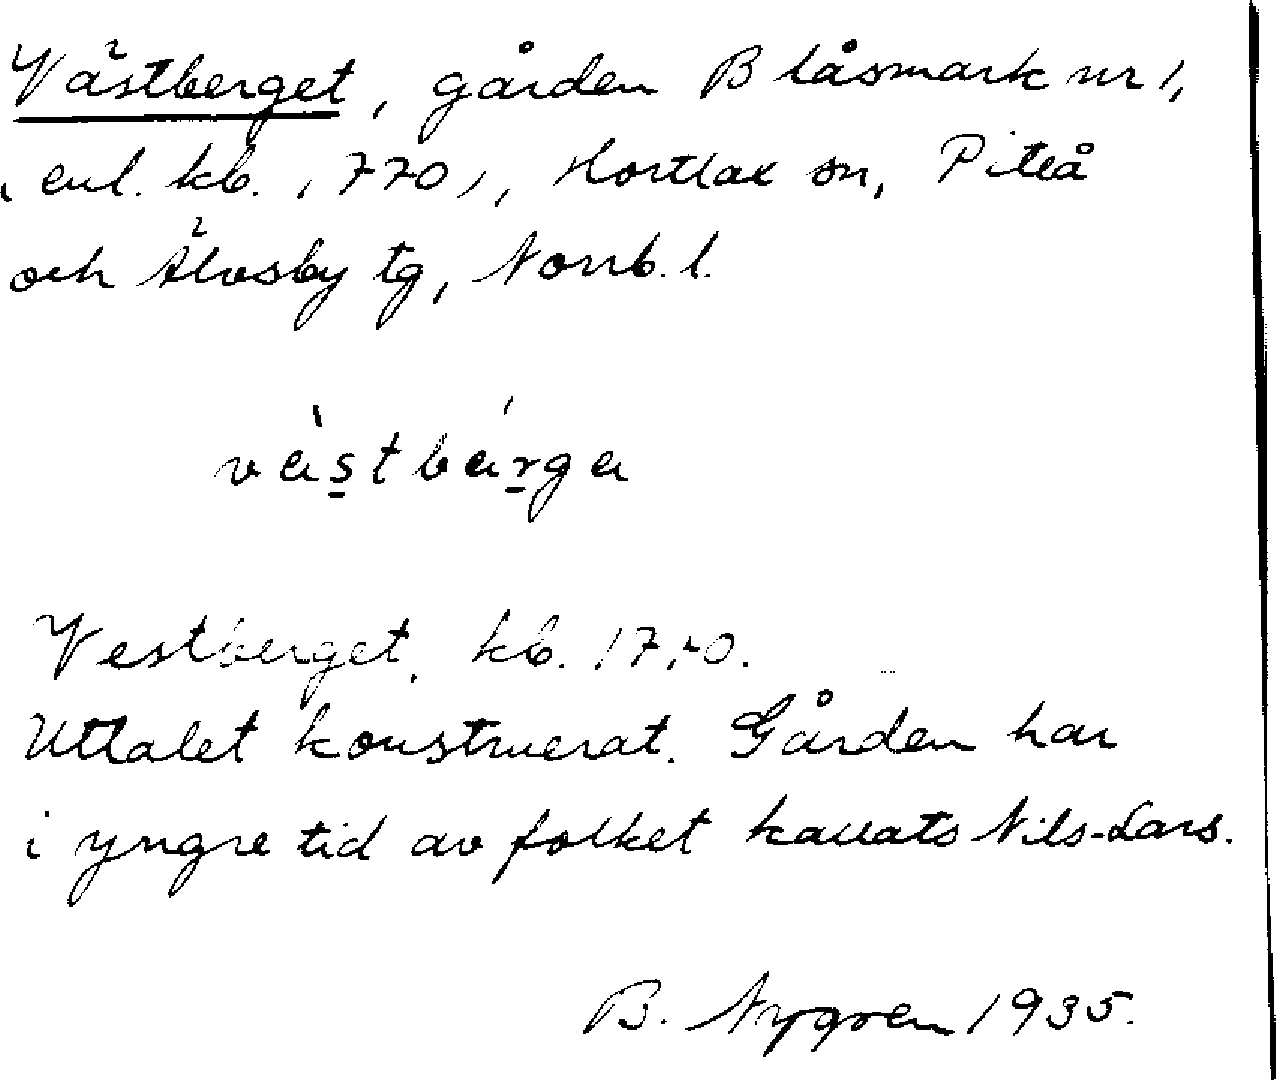 Västberget, gården Blåsmark nr 1,
enl. kb. 1770, Hortlax sn, Piteå
och Älvsby tg, Norrb. l.
västbärga
Vestberget, kb. 1770.
Uttalet konstruerat. Gården har
i yngre tid av folket kallats Nils-Lars.
B. Nygren 1935.